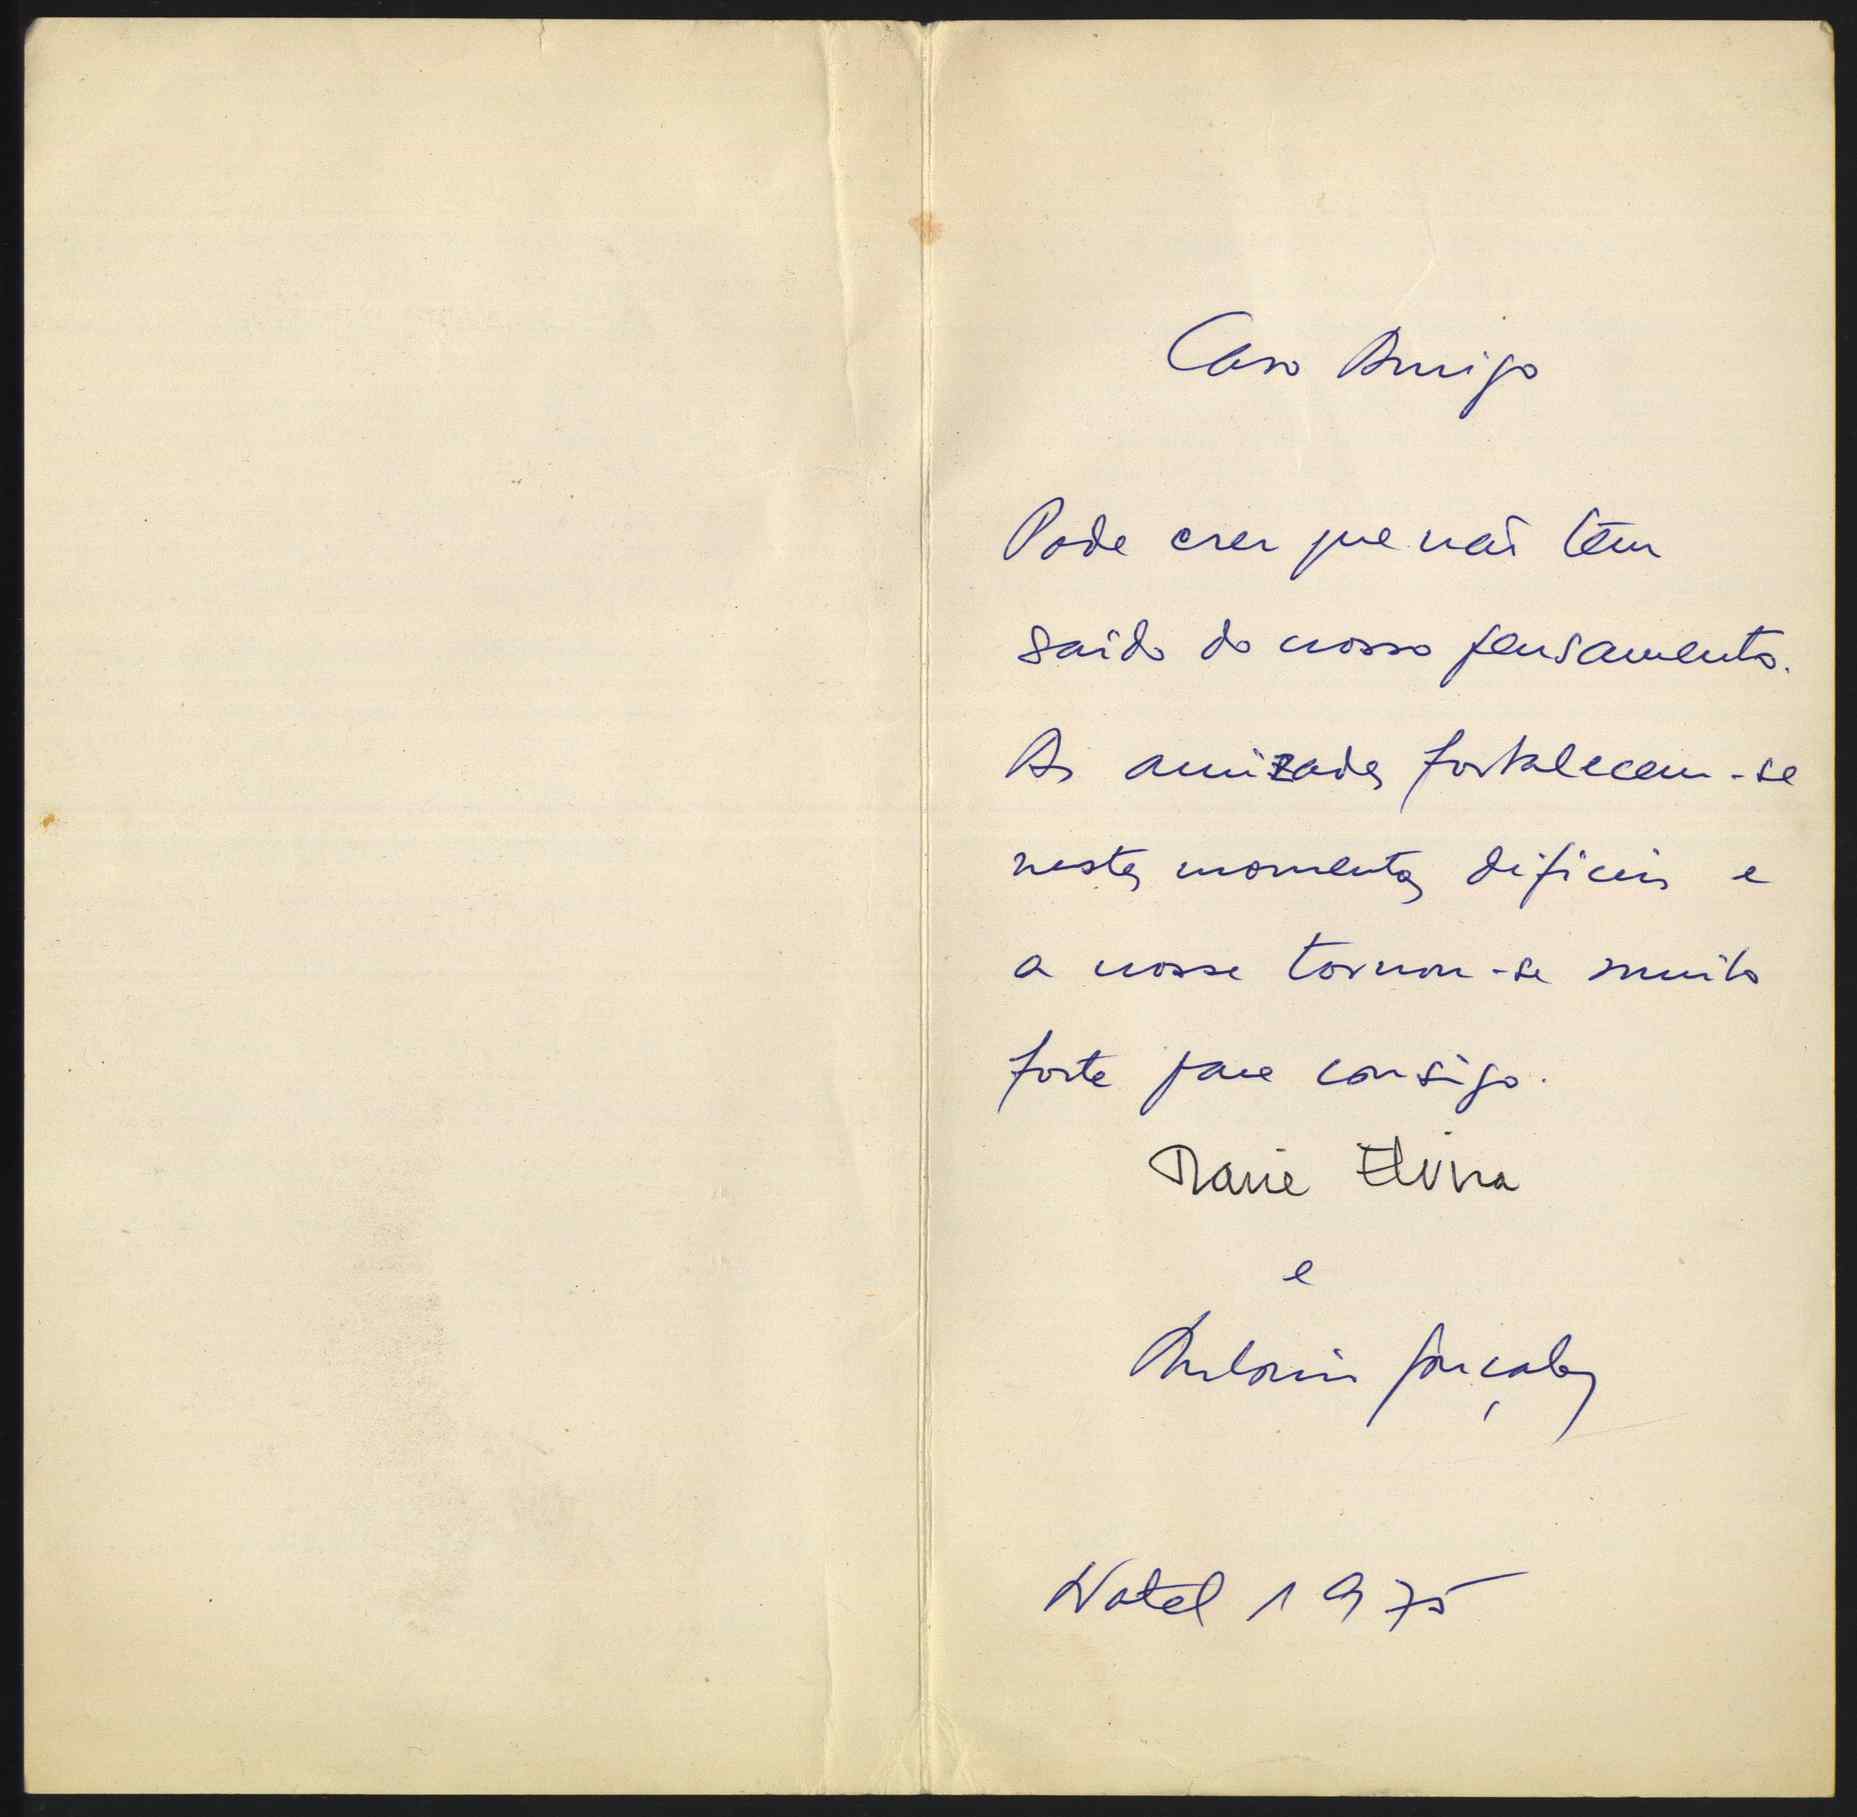 Caro Amigo
Pode crer que não têm
saído do nosso pensamento.
As amizades fortalecem-se
nestes momentos dificeis e
a nossa tornou-se muito
forte para consigo.
Maria Elvira
e
António Gonçalves
Natal 1975